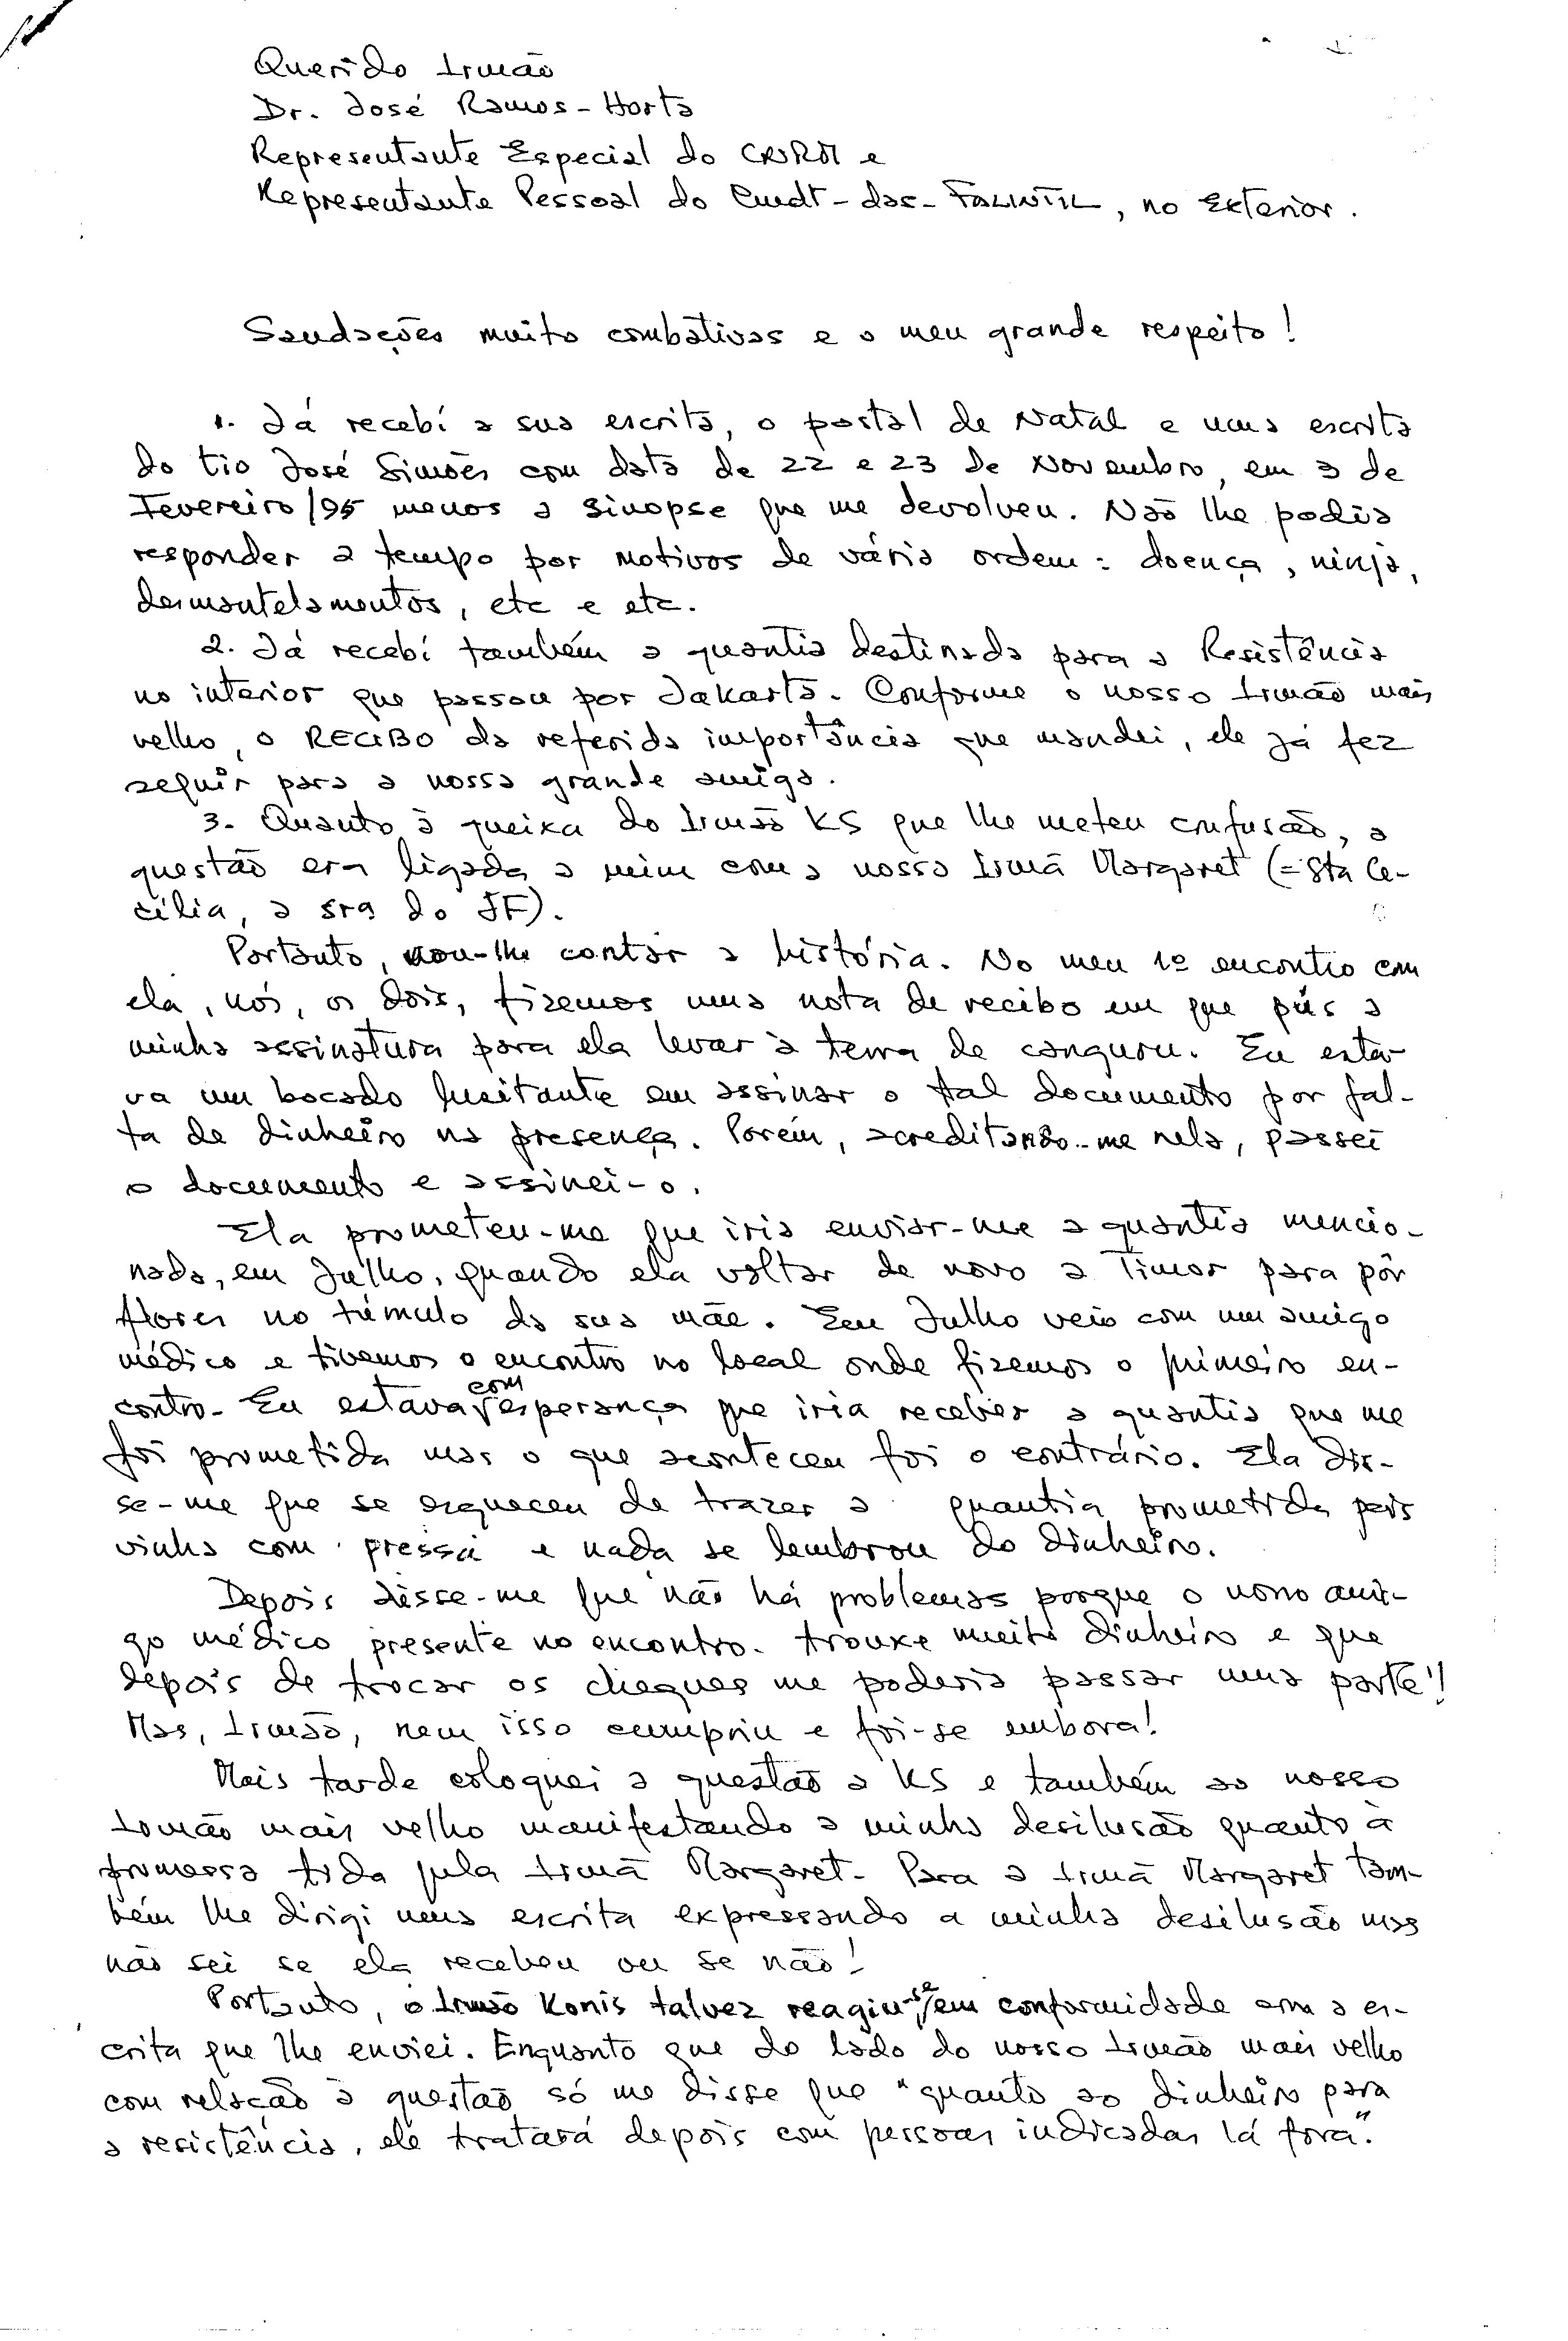 Querido Irmão
Dr. José Ramos-Horta
Representante Especial do CNRM e
Representante Pessoal do Cmdt-das-FALINTIL, no Exterior.
Saudações muito combativas e o meu grande respeito!
1. Já recebí a sua escrita, o postal de Natal e uma escrita
do tio José Simões com data de 22 e 23 de Novembro, em 3 de
Fevereiro/95 menos a Sinopse que me devolveu. Não lhe podia
responder a tempo por motivos de vária ordem: doença, ninja,
desmantelamentos, etc e etc.
2. Já recebí também a quantia destinada para a Resistência
no interior que passou por Jakarta. Conforme o nosso Irmão mais
velho, o RECIBO da referida importância que mandei, ele já fez
seguir para a nossa grande amiga.
3. Quanto à queixa do Irmão KS que lhe meteu confusão, a
questão era ligada a mim com a nossa Irmã Margaret (=Sta Ce-
cília, a sra do JF).
Portanto, vou-lhe contar a história. No meu 1º encontro com
ela, nós, os dois, fizemos uma nota de recibo em que pús a
minha assinatura para ela levar à terra de canguru. Eu esta-
va um bocado husitante em assinar o tal documento por fal-
ta de dinheiro na presença. Porém, acreditando-me nela, passei
o documento e assinei-o.
Ela prometeu-me que iria enviar-me a quantia mencio-
nada, em Julho, quando ela voltar de novo a Timor para pôr
flores no túmulo da sua mãe. Em Julho veio com um amigo
médico e tivemos o encontro no local onde fizemos o primeiro en-
contro. Eu estava com esperança que iria receber a quantia que me
foi prometida mas o que aconteceu foi o contrário. Ela dis-
se-me que se esqueceu de trazer a quantia prometida pois
vinha com pressa e nada se lembrou do dinheiro.
Depois disse-me que não há problemas porque o nosso ami-
go médico presente no encontro. trouxe muito dinheiro e que
depois de trocar os cheques me poderia passar uma parte!!
Mas, Irmão, nem isso cumpriu e foi-se embora!
Mais tarde coloquei a questão a KS e também ao nosso
Irmão mais velho manifestando a minha desilusão quanto à
promessa tida pela Irmã Margaret. Para a Irmã Margaret tam-
bém lhe dirigi uma escrita expressando a minha desilusão mas
não sei se ela recebeu ou se não!
Portanto, o Irmão Konis talvez reagiu-se em conformidade com a es-
crita que lhe enviei. Enquanto que do lado do nosso Irmão mais velho
com relação à questão só me disse que "quanto ao dinheiro para
a resistência, ele tratará depois com pessoas indicadas lá fora."